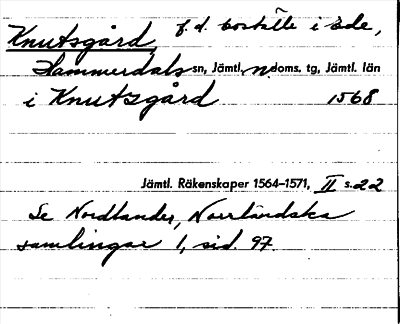 Knutsgård f.d. boställe i Ede,
Hammerdals sn, Jämtl. n. doms. tg, Jämtl. län
i Knutzgård 1568
Jämtl. Räkenskaper 1564–1571, II s. 22
Se Nordlander, Norrländska
samlingar 1, sid. 97.